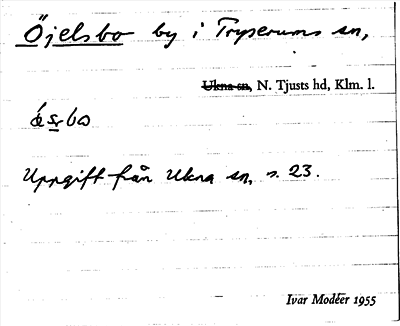 Öjelsbo by i Tryserums sn,
Ukna sn, N. Tjusts hd, Klm. l.
Uppgift från Ukna sn, s. 23.
Ivar Modéer 1955